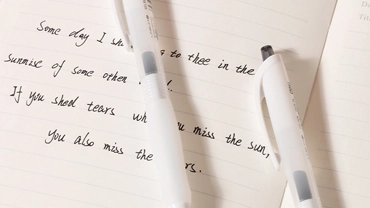 Some day I to thee in the
sunrise of some other
If you shed tears miss the sun,
you also miss the